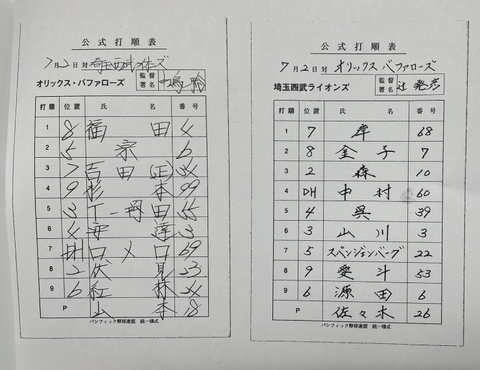 公式打順表
7月2日 対 埼玉西武ライオンズ
オリックス・バファローズ 監督署名 中嶋 聡
打順 位置 氏名 番号
1 8 福田 4
2 5 宗 6
3 7 吉田(正) 34
4 9 杉本 99
5 3 T-岡田 55
6 4 安達 3
7 DH ロメロ 69
8 2 伏見 23
9 6 紅林 24
P 山本 18
パシフィック野球連盟 統一様式
公式打順表
7月2日 対 オリックスバファローズ
埼玉西武ライオンズ 監督署名 辻 発彦
打順 位置 氏名 番号
1 7 岸 68
2 8 金子 7
3 2 森 10
4 DH 中村 60
5 4 呉 39
6 3 山川 3
7 5 スパンジェンバーグ 22
8 9 愛斗 53
9 6 源田 6
P 佐々木 26
パシフィック野球連盟 統一様式